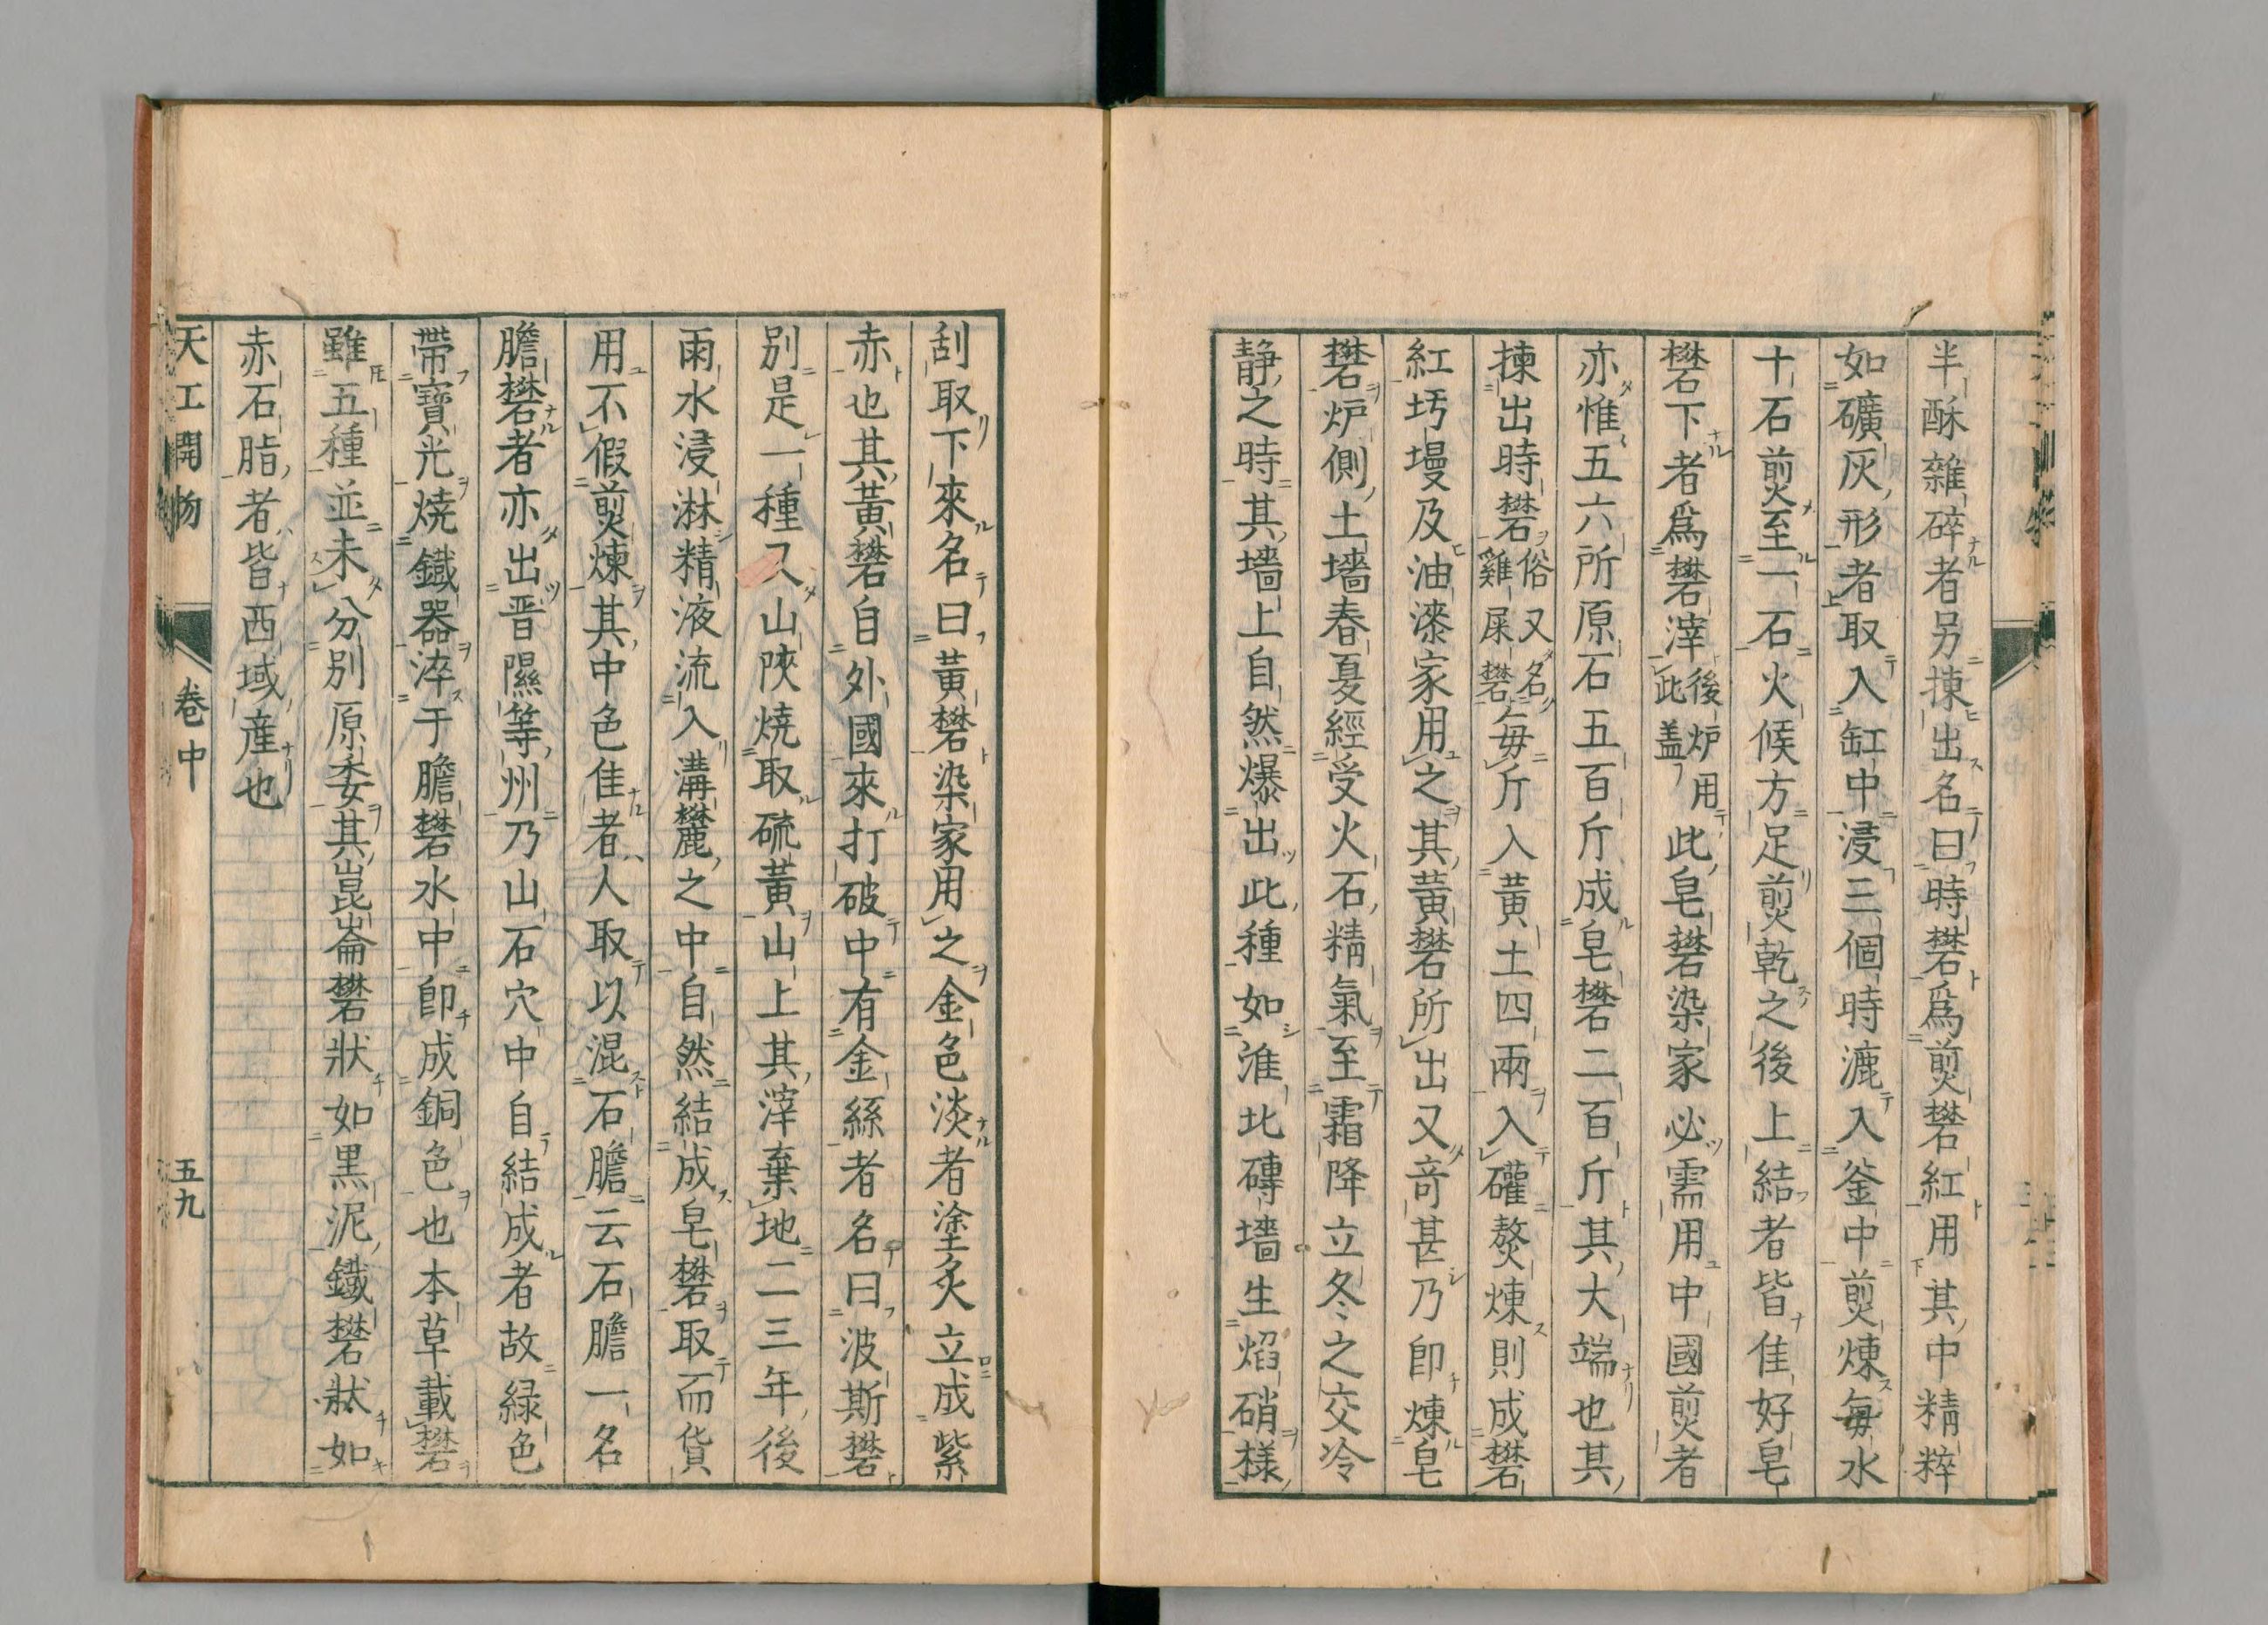 半酥雜碎者另揀出名曰時礬爲煎礬紅用其中精粹
如礦灰形者取入缸中浸三個時漉入釜中煎煉每水
十石煎至一石火候方足煎乾之後上結者皆佳好皂
礬下者爲礬滓後炉用此盖此皂礬染家必需用中國煎者
亦惟五六所原石五百斤成皂礬二百斤其大端也其
揀出時礬俗又名雞屎礬每斤入黃土四兩入礶熬煉則成礬
紅圬墁及油漆家用之其黃礬所出又奇甚乃即煉皂
礬炉側土墻春夏經受火石精氣至霜降立冬之交冷
静之時其墻上自然爆出此種如淮北磚墻生焰硝樣
刮取下來名曰黃礬染家用之金色淡者塗炙立成紫
赤也其黃礬自外國來打破中有金絲者名曰波斯礬
別是一種又山陝燒取硫黃山上其滓棄地二三年後
雨水浸淋精液流入溝麓之中自然結成皂礬取而貨
用不假煎煉其中色佳者人取以混石膽云石膽一名
膽礬者亦出晋隰等州乃山石穴中自結成者故緑色
帶寶光燒鐵器淬于膽礬水中即成銅色也本草載礬
雖五種並未分別原委其崑崙礬狀如黒泥鐵礬狀如
赤石脂者皆西域産也
天工開物　卷中　五九